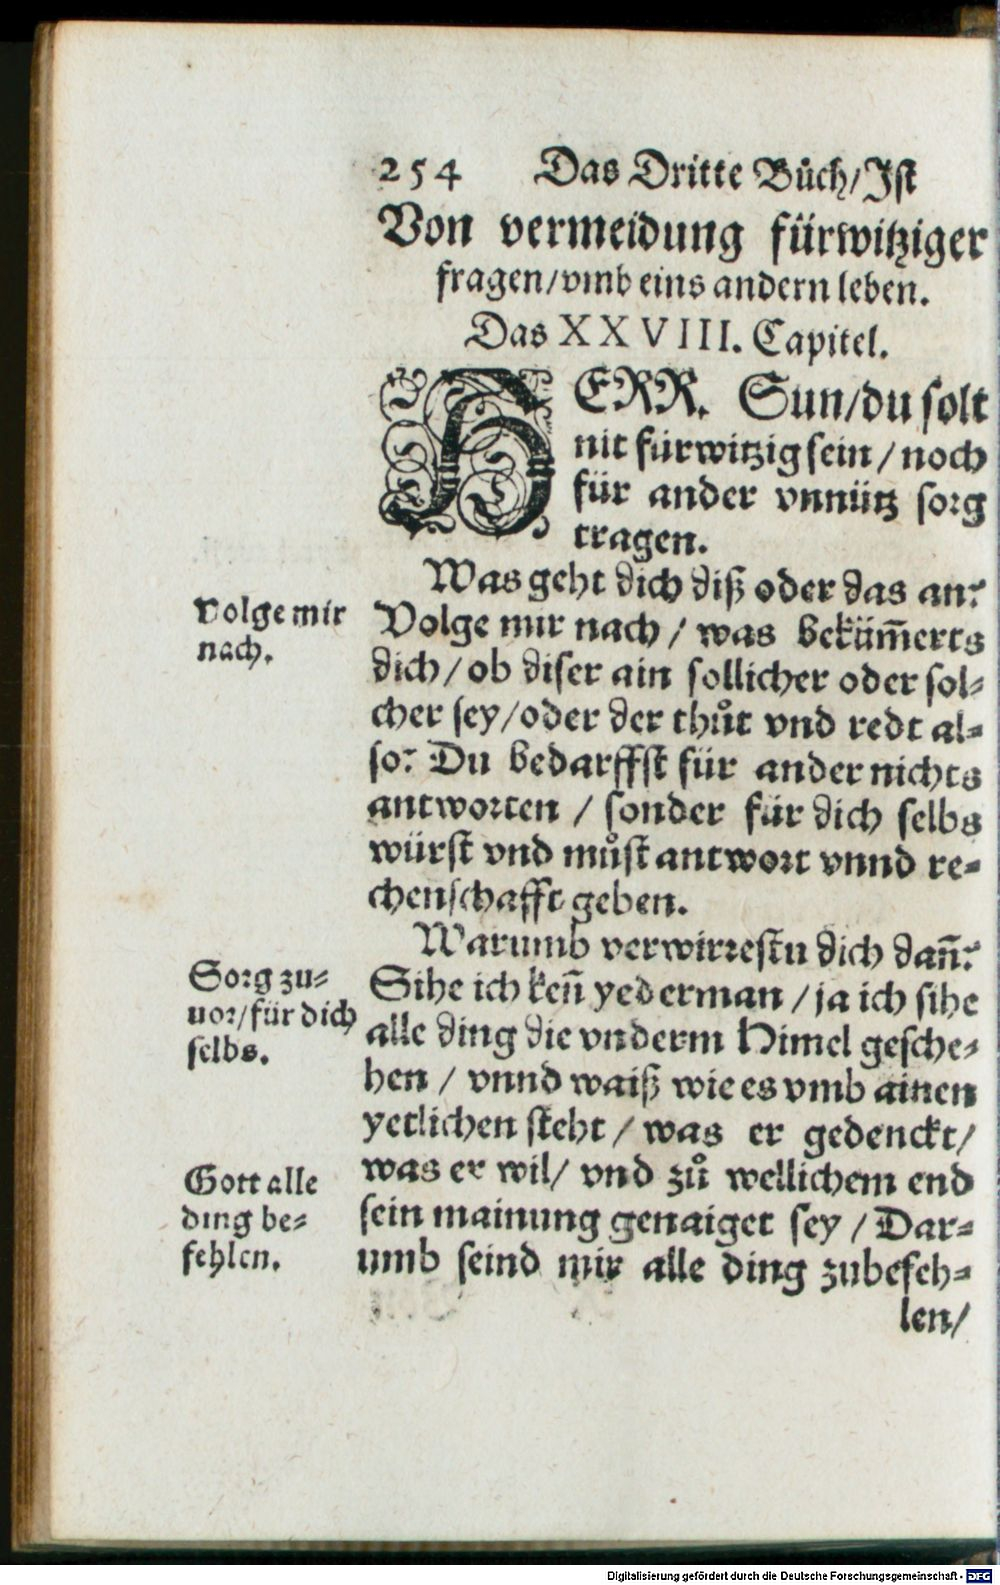 254 Das Dritte Bůch/Jſt
Von vermeidung fürwitziger
fragen/vmb eins andern leben.
Das XXVIII. Capitel.
HERR. Sun/du ſolt
nit fürwitzig ſein / noch
für ander vnnütz ſorg
tragen.
Was geht dich diß oder das an?
Volge mir nach.
Volge mir nach / was beküm̃erts
dich / ob diſer ain ſollicher oder ſol⸗
cher ſey/oder der thůt vnd redt al⸗
ſo? Du bedarffſt für ander nichts
antworten / ſonder für dich ſelbs
würſt vnd můſt antwort vnnd re⸗
chenſchafft geben.
Warumb verwirreſtu dich dañ?
Sorg zu⸗
uor/für dich
ſelbs.
Sihe ich keñ yederman / ja ich ſihe
alle ding die vnderm Himel geſche⸗
hen / vnnd waiß wie es vmb ainen
yetlichen ſteht / was er gedenckt/
Gott alle
ding be⸗
fehlen.
was er wil/ vnd zů wellichem end
ſein mainung genaiget ſey / Dar⸗
umb ſeind mir alle ding zubefeh⸗
len/
Digitalisierung gefördert durch die Deutsche Forschungsgemeinschaft - DFG